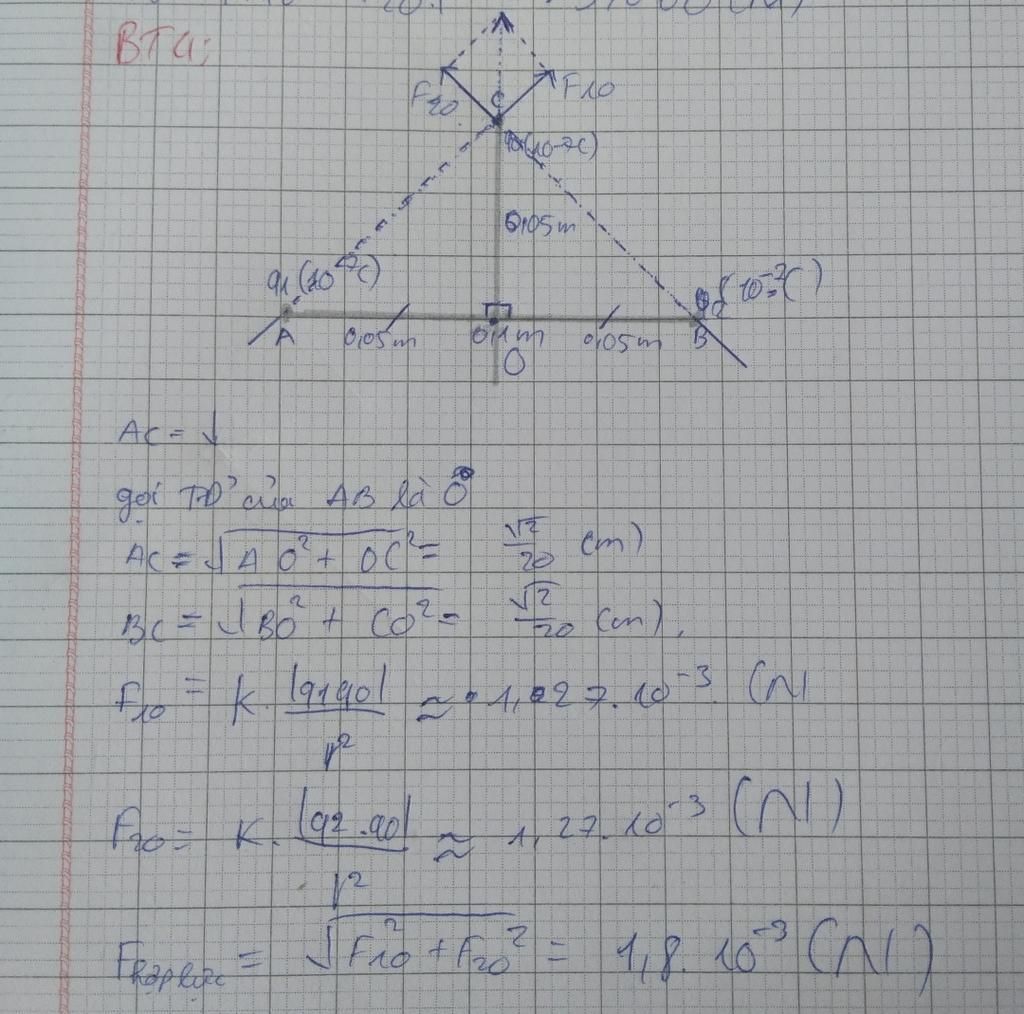 BT4:
F20 C F10
q0(10⁻⁷C)
0,05m
q1(10⁻⁷C)
A 0,05m 0,1m 0,05m B
O
AC = √
gọi TĐ của AB là O
AC = √AO² + OC² = √2/20 (m)
BC = √BO² + CO² = √2/20 (m).
F10 = k. |q1q0|/r² ≈ 1,27.10⁻³. (N
F20 = k. |q2.q0|/r² ≈ 1,27.10⁻³ (N)
Fhợp lực = √F10² + F20² = 1,8.10⁻³ (N)